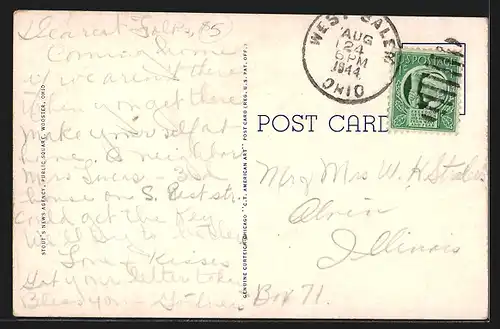 Dearest Folks, (5)
Coming home
if we aren't there
when you get there
make yourself at
home. A neighbor
Mrs Lucas 3rd
house on S. East str.
could get the key
Love & Kisses
Got your letter today
Bless you
STOUT'S NEWS AGENCY, PUBLIC SQUARE, WOOSTER, OHIO
GENUINE CURTEICH-CHICAGO "C.T. AMERICAN ART" POST CARD (REG. U.S. PAT. OFF.)
WEST SALEM
AUG
24
6 PM
1944
OHIO
U.S. POSTAGE
POST CARD
Mr & Mrs W. H.
Alvin
Illinois
Box 71.